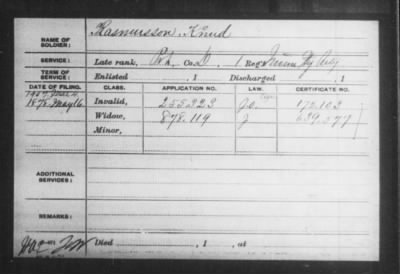 NAME OF SOLDIER: Rasmusson, Knud
SERVICE: Late rank, Pvt, Co. D, 1 Reg't Minn Hy Arty
TERM OF SERVICE: Enlisted , 1 Discharged , 1
DATE OF FILING. CLASS. APPLICATION NO. LAW. CERTIFICATE NO.
1878, May 16 Invalid, 255.323 172.103
1907 Widow, 878.119 639.577
Minor,
ADDITIONAL SERVICES:
REMARKS:
Died , 1 , at